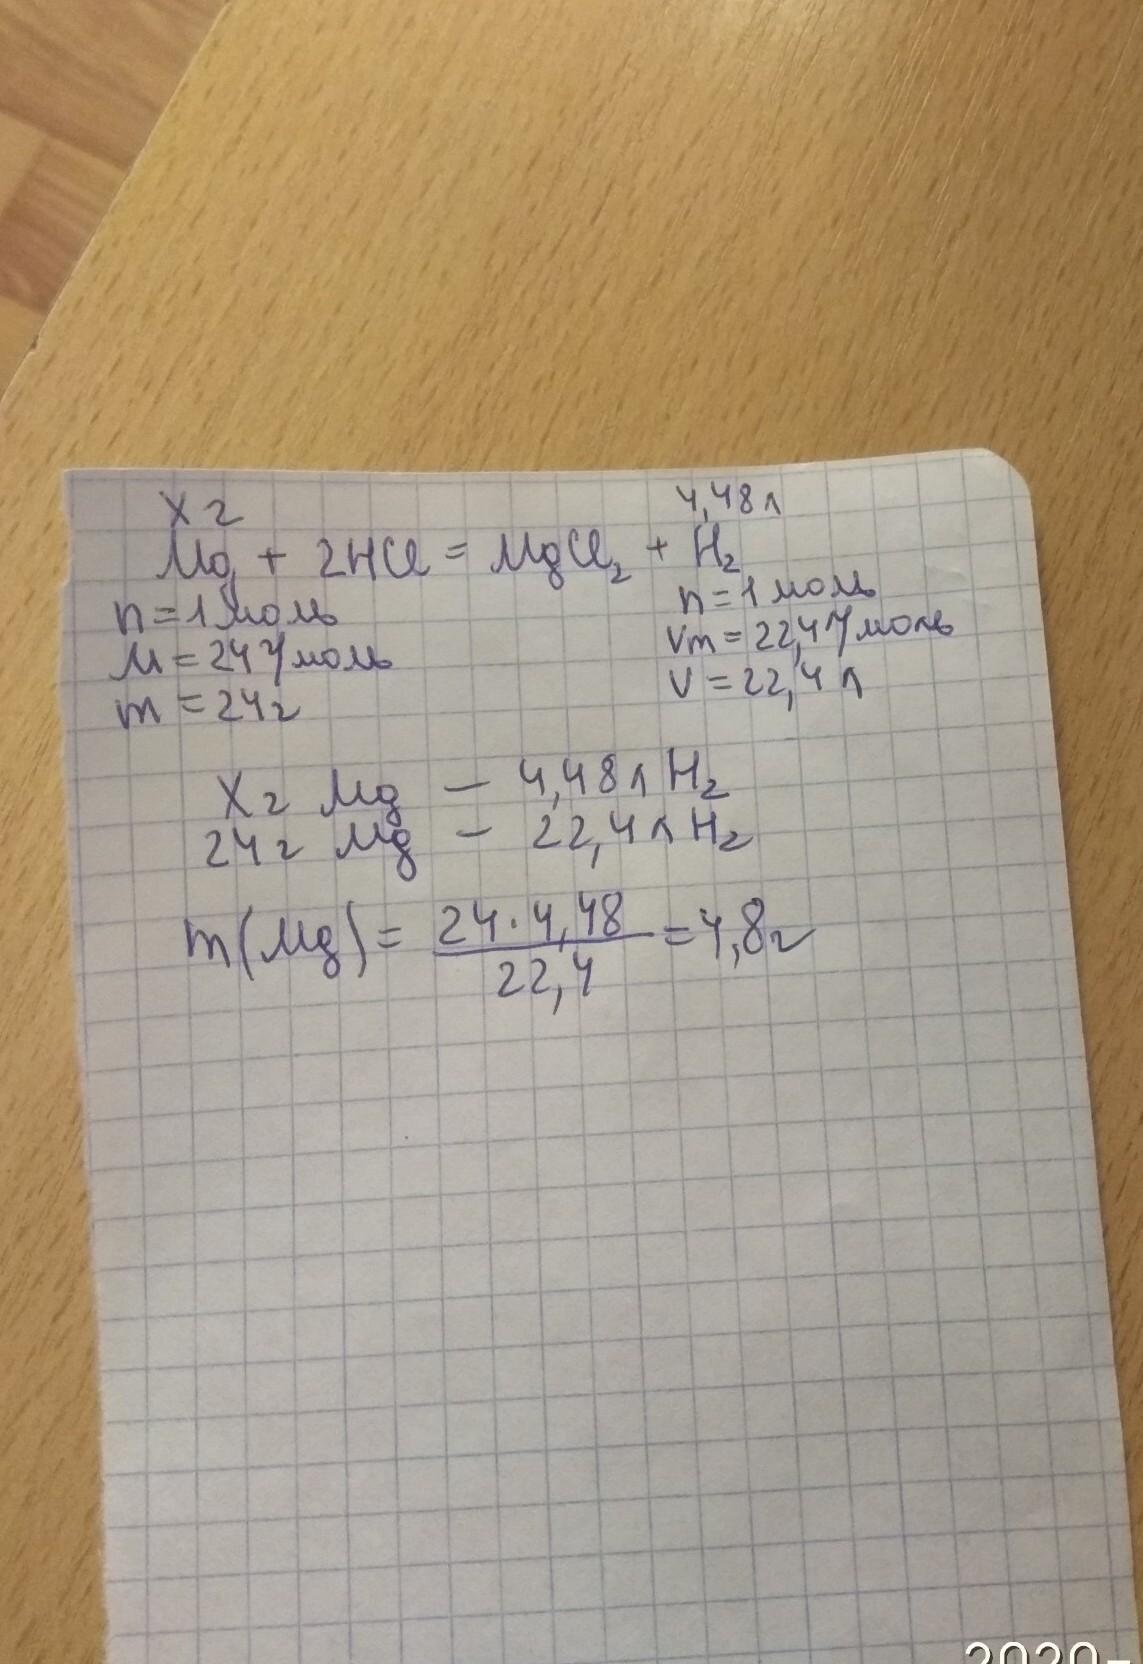 x г
4,48 л
Mg + 2HCl = MgCl₂ + H₂
n = 1 моль
n = 1 моль
M = 24 г/моль
Vm = 22,4 л/моль
m = 24 г
V = 22,4 л
x г Mg – 4,48 л H₂
24 г Mg – 22,4 л H₂
m(Mg) = 24·4,48 / 22,4 = 4,8 г